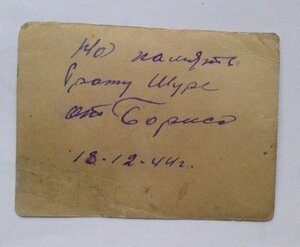 На память
брату Шуре
от Бориса
13-12-44г.